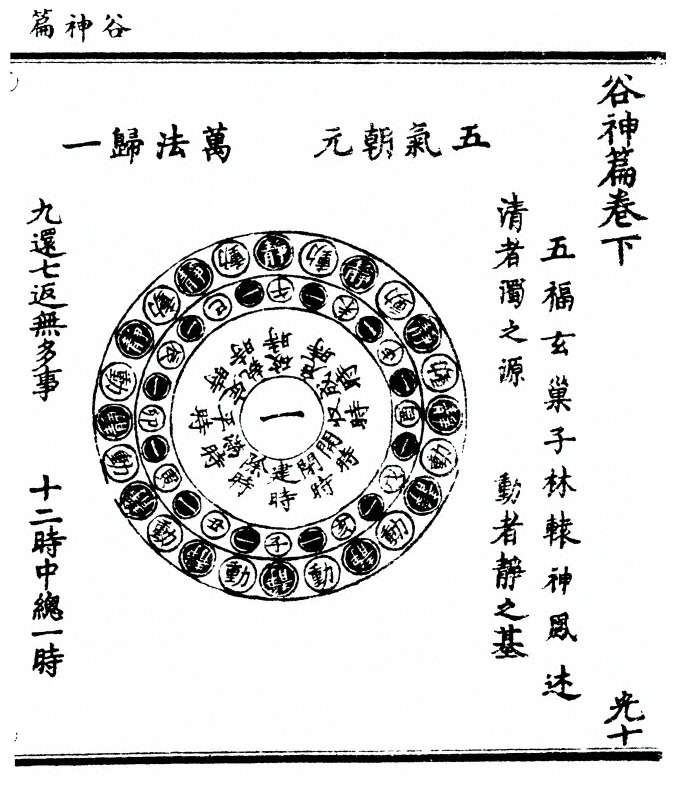 谷神篇
谷神篇卷下
光十
五福玄巢子林轅神鳳述
五氣朝元
萬法歸一
清者濁之源
動者靜之基
靜動靜動靜動靜動靜動靜動靜動靜動靜動靜動靜動靜動靜動
子一丑一寅一卯一辰一巳一午一未一申一酉一戌一亥一
建時
除時
滿時
平時
定時
執時
破時
危時
成時
收時
開時
閉時
一
九還七返無多事
十二時中總一時